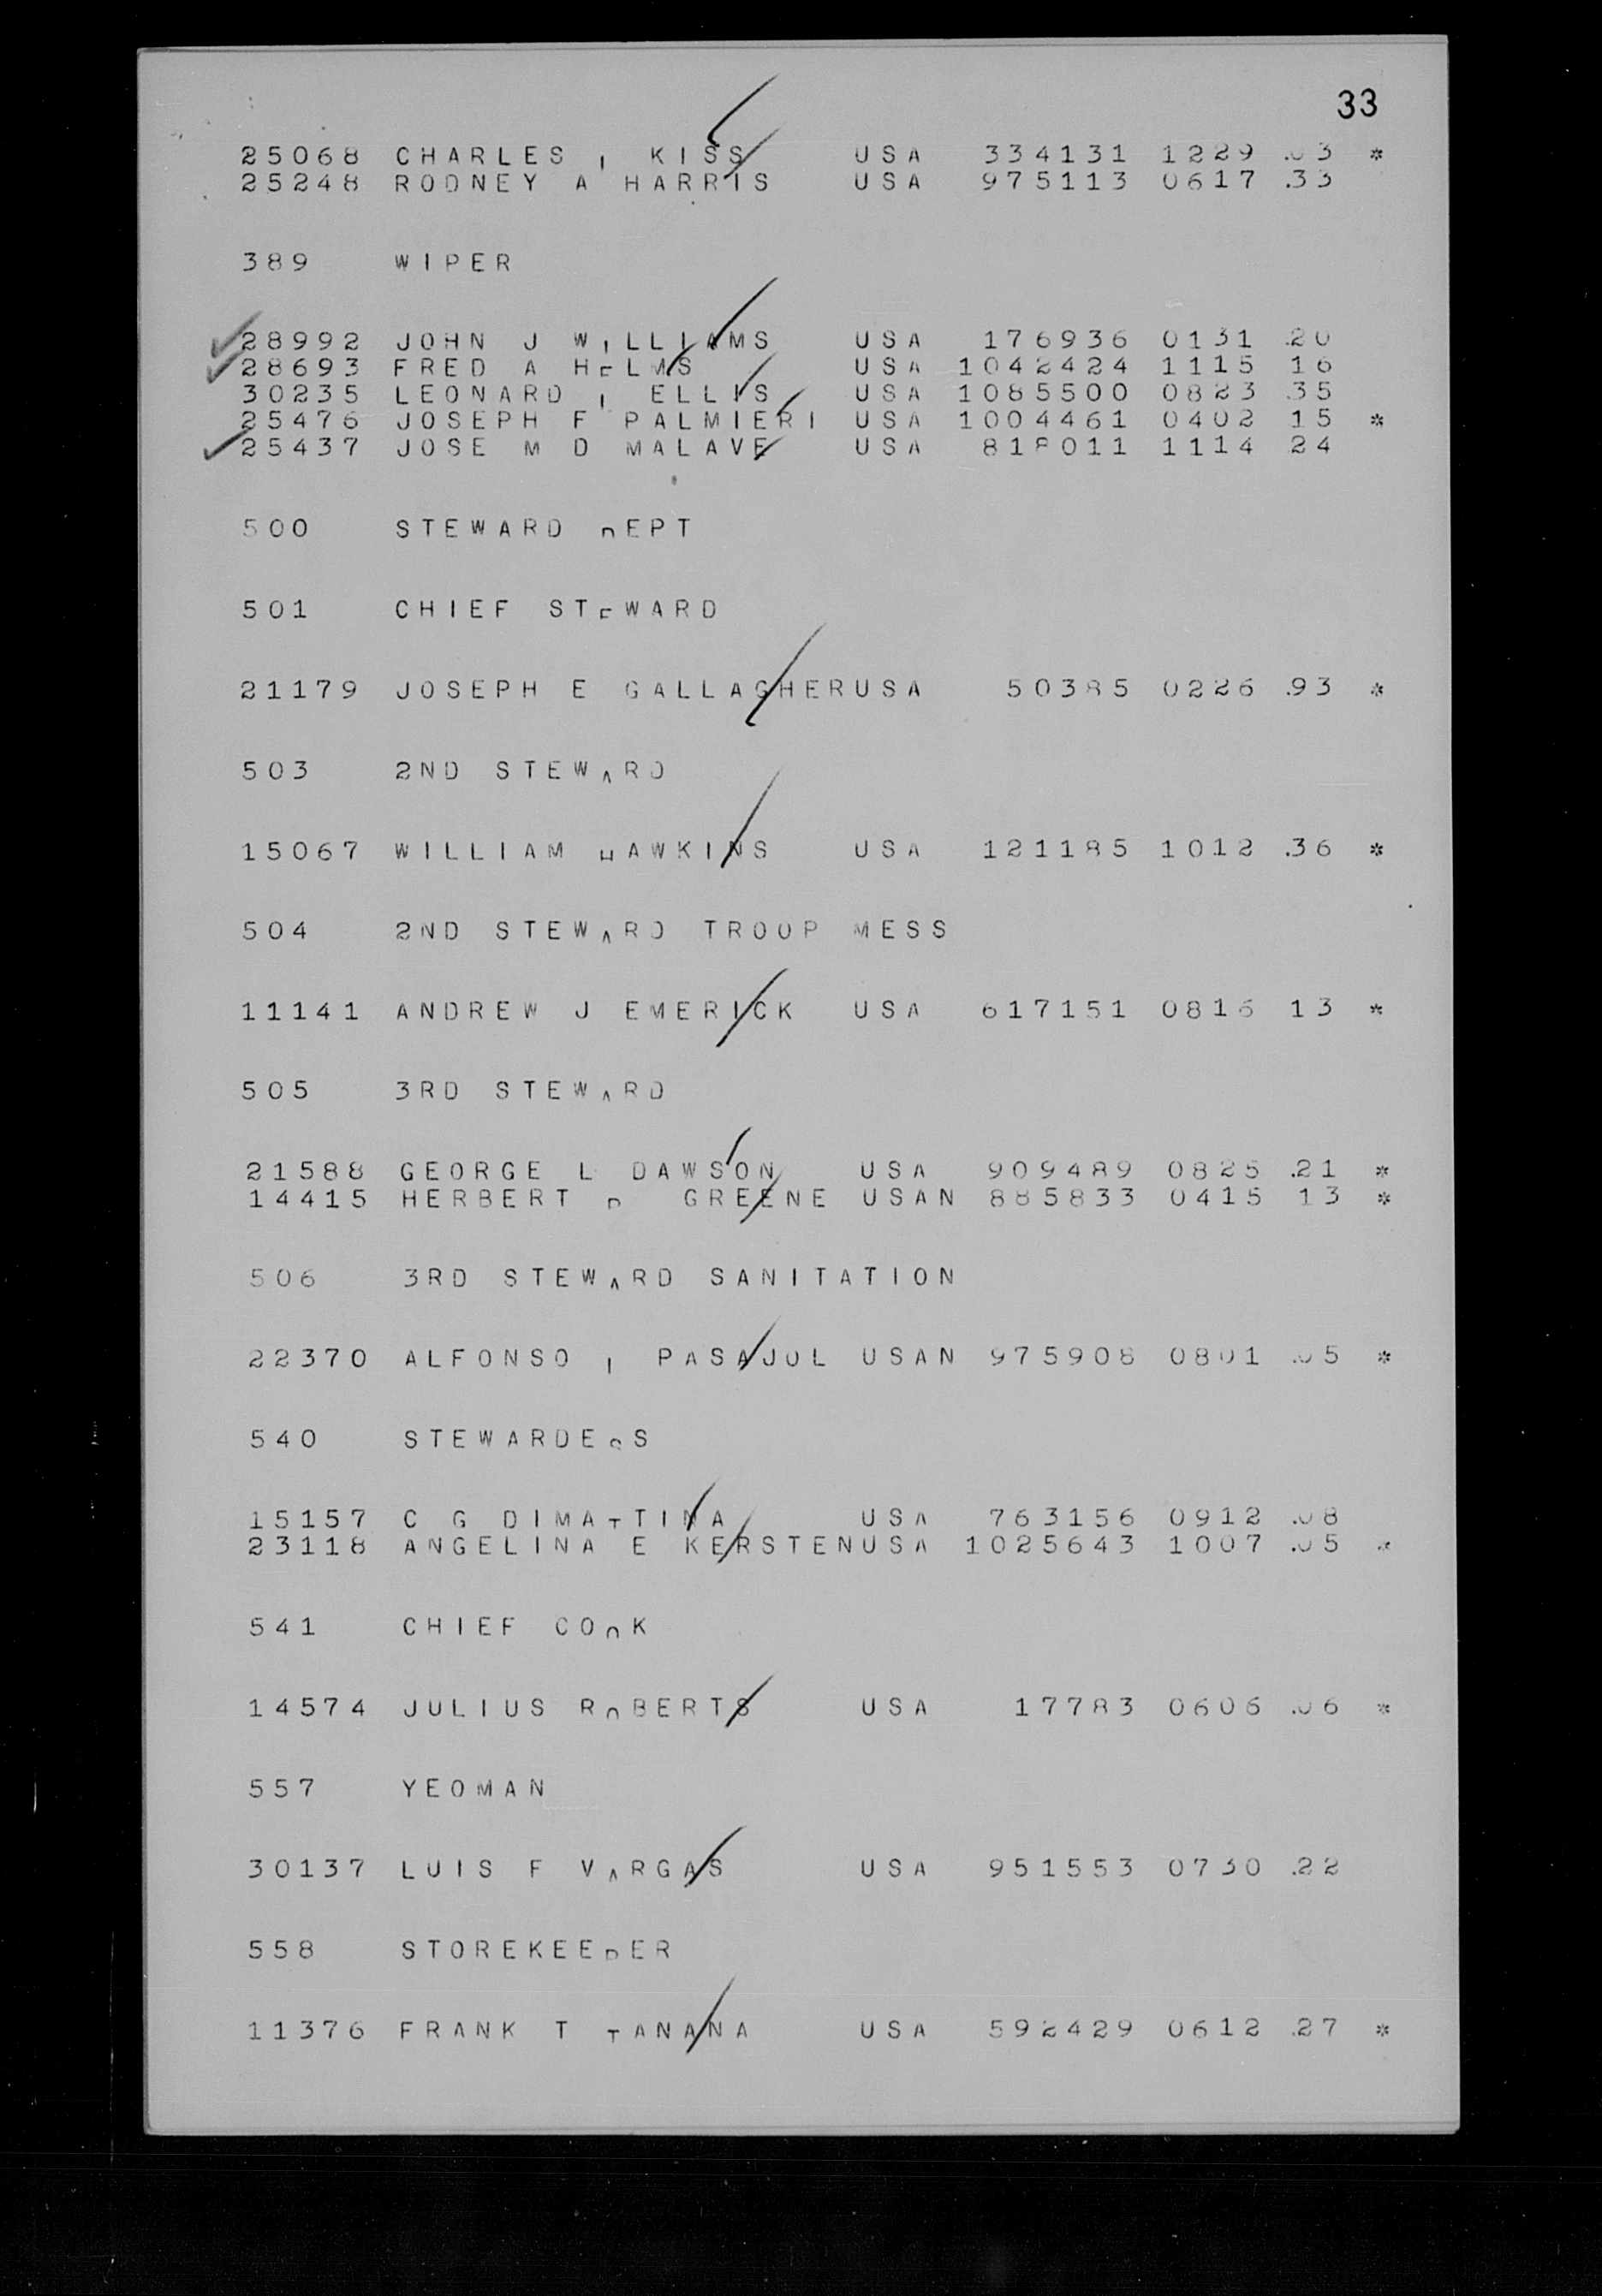 33
25068 CHARLES I KISS USA 334131 1229 .03 *
25248 RODNEY A HARRIS USA 975113 0617 .33
389 WIPER
28992 JOHN J WILLIAMS USA 176936 0131 .20
28693 FRED A HELMS USA 1042424 1115 16
30235 LEONARD I ELLIS USA 1085500 0823 .35
25476 JOSEPH F PALMIERI USA 1004461 0402 15 *
25437 JOSE M D MALAVE USA 818011 1114 24
500 STEWARD DEPT
501 CHIEF STEWARD
21179 JOSEPH E GALLAGHERUSA 50385 0226 .93 *
503 2ND STEWARD
15067 WILLIAM HAWKINS USA 121185 1012 .36 *
504 2ND STEWARD TROOP MESS
11141 ANDREW J EMERICK USA 617151 0816 13 *
505 3RD STEWARD
21588 GEORGE L DAWSON USA 909489 0825 .21 *
14415 HERBERT GREENE USAN 885833 0415 13 *
506 3RD STEWARD SANITATION
22370 ALFONSO I PASAJOL USAN 975908 0801 .05 *
540 STEWARDESS
15157 C G DIMATTINA USA 763156 0912 .08
23118 ANGELINA E KERSTENUSA 1025643 1007 .05 *
541 CHIEF COOK
14574 JULIUS ROBERTS USA 17783 0606 .06 *
557 YEOMAN
30137 LUIS F VARGAS USA 951553 0730 .22
558 STOREKEEPER
11376 FRANK T TANANA USA 592429 0612 .27 *